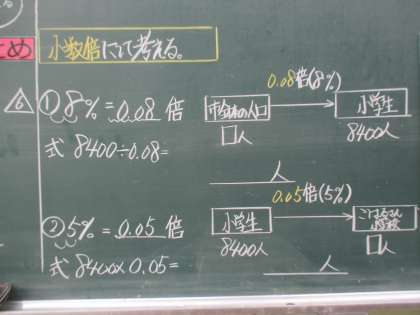 とめ
小数倍にして考える。
6
① 8%=0.08 倍
式 8400÷0.08=
0.08倍(8%)
市全体の人口
□人
小学生
8400人
人
② 5%=0.05 倍
式 8400×0.05=
0.05倍(5%)
小学生
8400人
□人
人